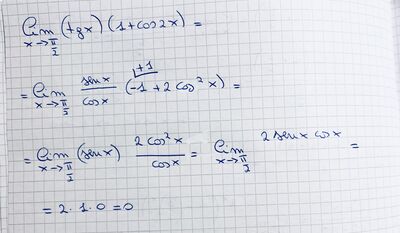 lim x→π/2 (tg x) (1+cos2x) =
+1
= lim x→π/2 sen x / cos x (-1 + 2 cos² x) =
= lim x→π/2 (sen x) 2 cos² x / cos x = lim x→π/2 2 sen x cos x =
= 2 · 1 · 0 = 0